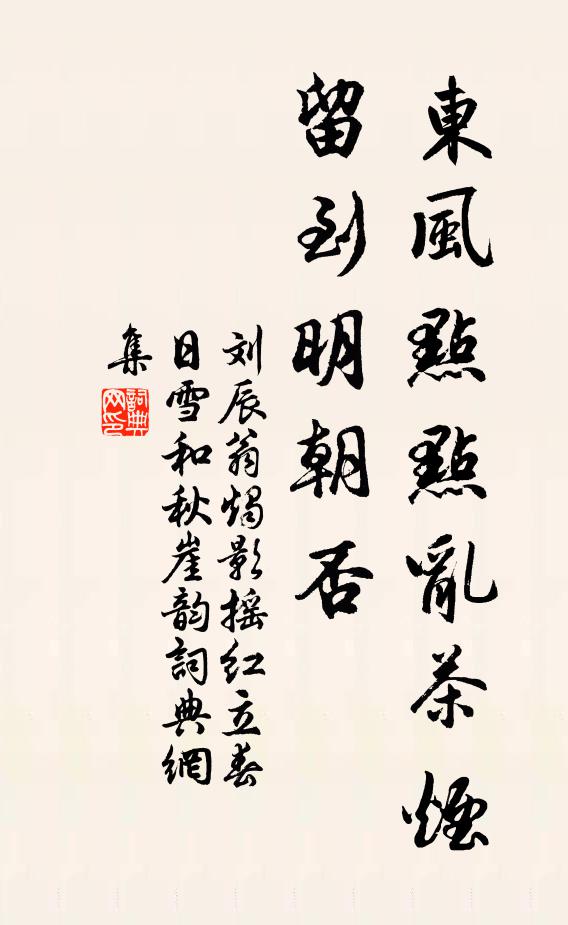 東風點點亂茶煙
留到明朝否
刘辰翁燭影摇红立春
日雪和秋崖韵詞典網
集
詞典
网印